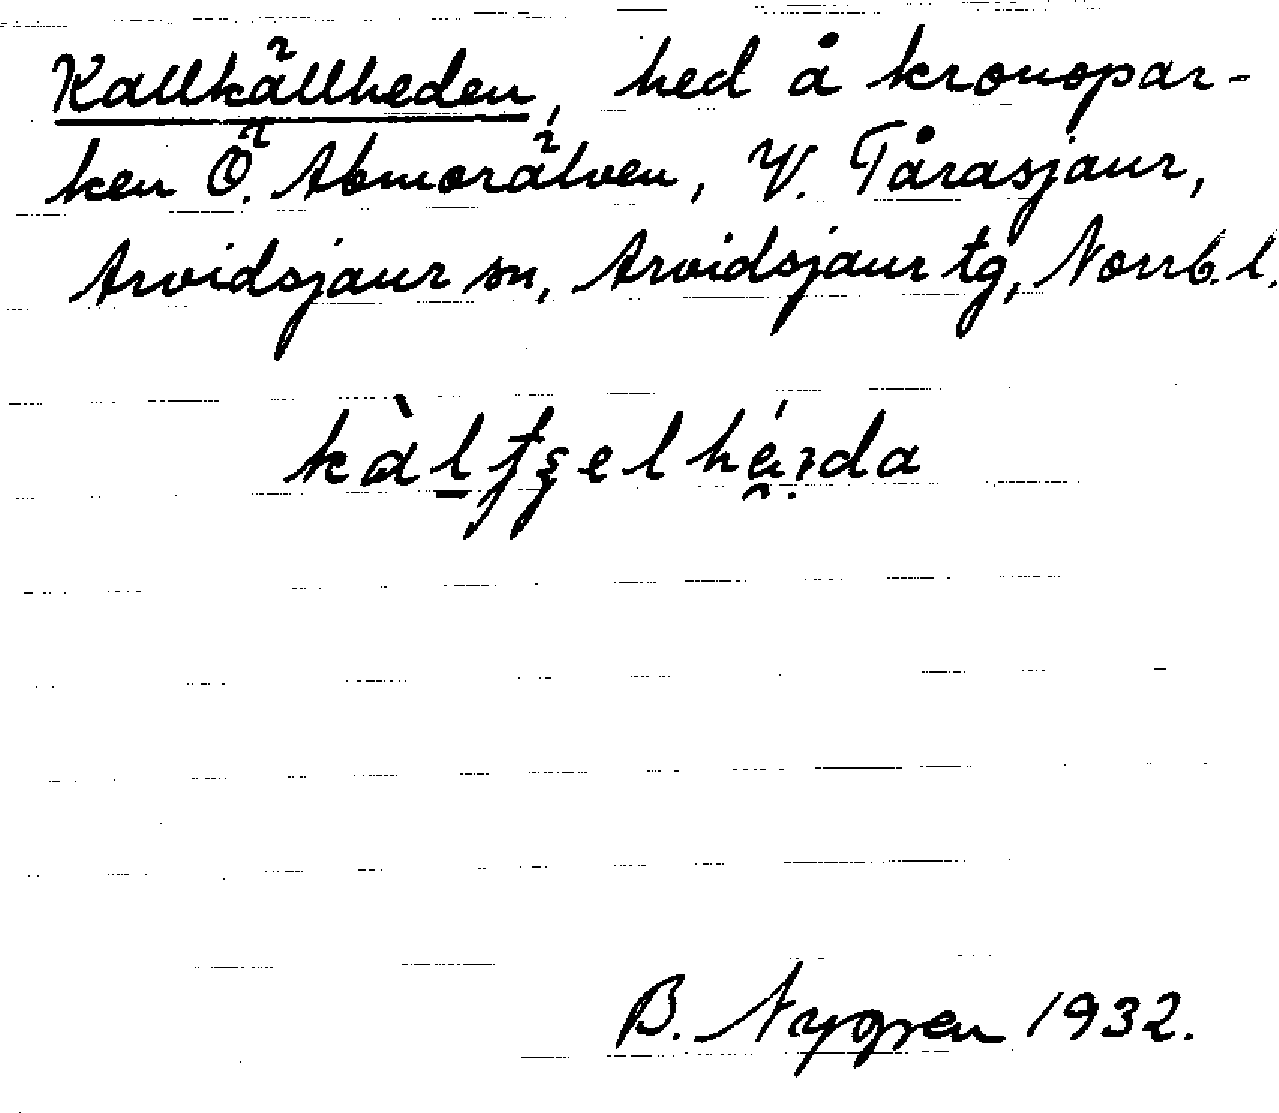 Kallkällheden, hed å kronopar-
ken Ö. Abmorälven, V. Tårasjaur,
Arvidsjaur sn, Arvidsjaur tg, Norrb. l.
B. Nygren 1932.